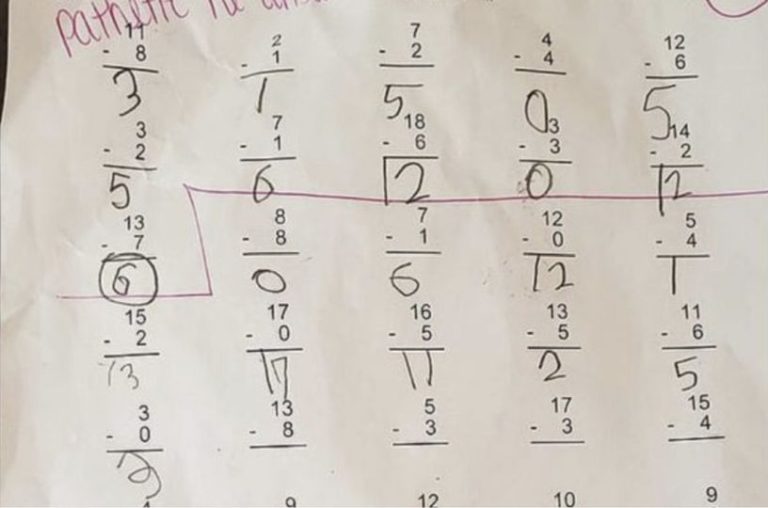 pathetic
11 2 7 4 12
- 8 - 1 - 2 - 4 - 6
3 1 5 0 5
3 7 18 3 14
- 2 - 1 - 6 - 3 - 2
5 6 12 0 12
13 8 7 12 5
- 7 - 8 - 1 - 0 - 4
6 0 6 12 1
15 17 16 13 11
- 2 - 0 - 5 - 5 - 6
13 17 11 2 5
3 13 5 17 15
- 0 - 8 - 3 - 3 - 4
3
9 12 10 9